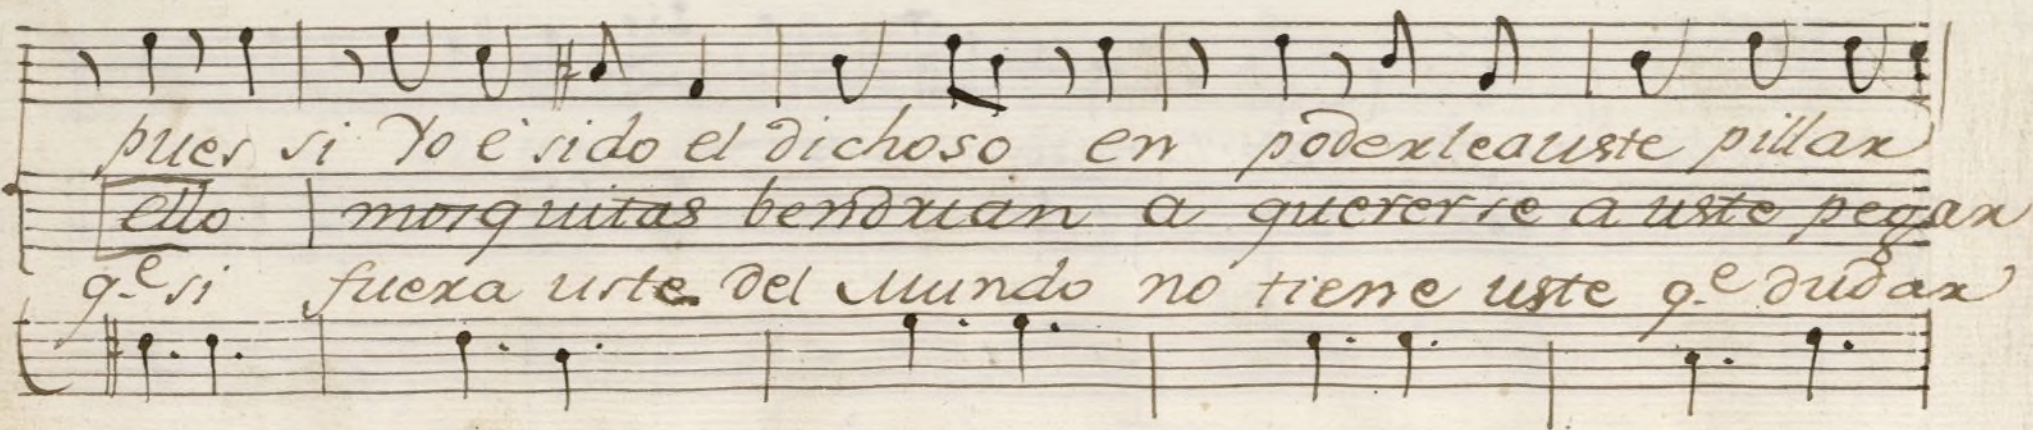 pues si Yo è sido el dichoso en poderleauste pillar
ello mosquitas bendrian a quererse a uste pegar
q.e si fuera uste del Mundo no tiene uste q.e dudar